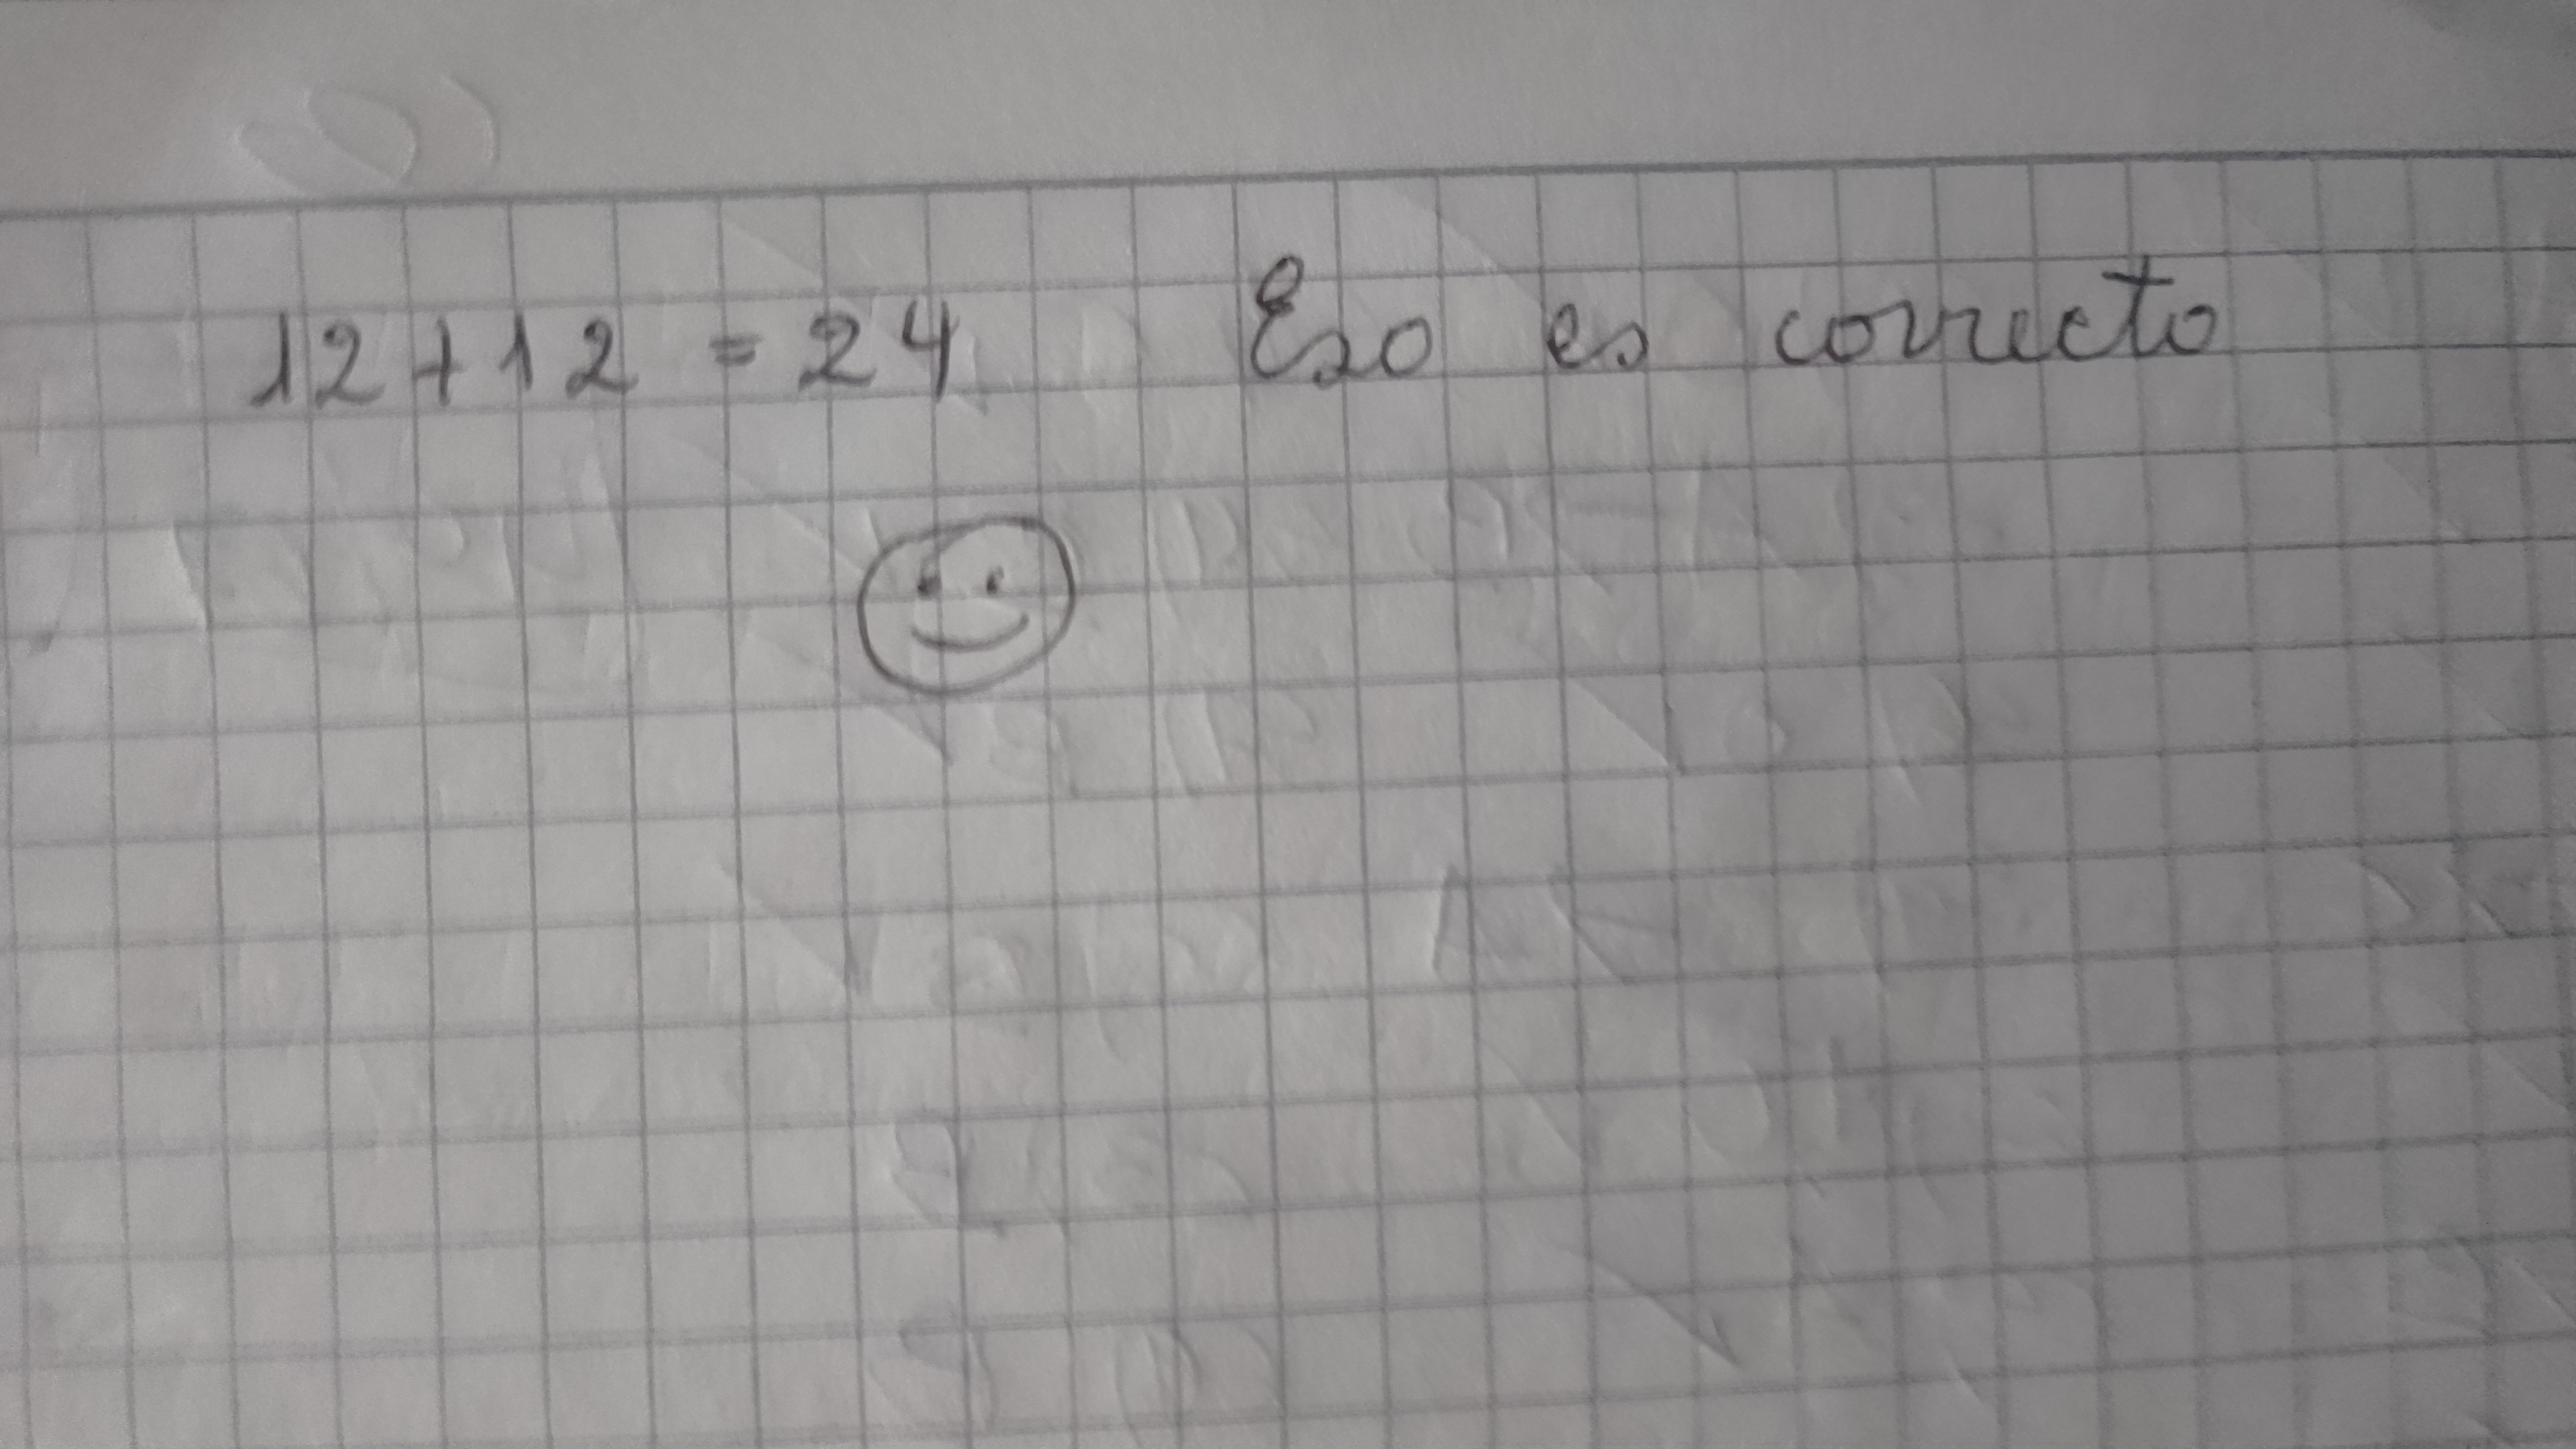 12+12 = 24 Eso es correcto